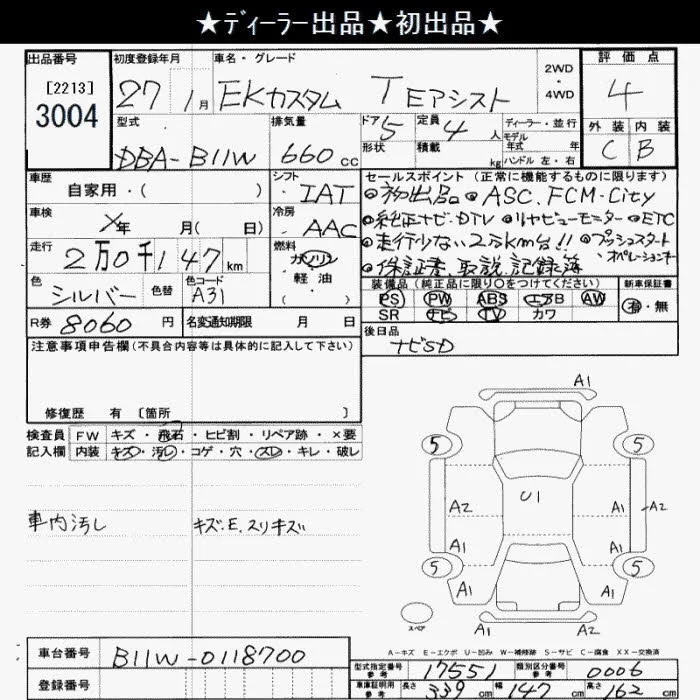 ★ディーラー出品★初出品★
出品番号 初度登録年月 車名・グレード 2WD・4WD 評価点
[2213] 3004
27 1月 EKカスタム T Eアシスト 4
型式 排気量 ドア 5 定員 4人 ディーラー・並行 外装 内装
形状 積載 kg モデル年式 年 ハンドル 左・右
DBA-B11W 660cc C B
車歴 自家用・( ) シフト IAT セールスポイント (正常に機能するものに限ります)
◎初出品 ◎ASC.FCM-City
車検 X年 月( 日) 冷房 AAC ◎純正ナビ・DTV ◎リヤビューモニター ◎ETC
走行 2万0千147km 燃料 ガソリン ・軽油 ・( ) ◎走行少ない2万km台!! ◎プッシュスタートオペレーションキー
◎保証書、取説、記録簿
色 シルバー 色替 色コード A31 装備品(純正品に限り〇をつけてください) 新車保証書
PS PW ABS エアB AW 有・無
SR ナビ TV カワ
R券 8060円 名変通知期限 月 日 後日品
ナビSD
注意事項申告欄(不具合内容等は具体的に記入して下さい)
修復歴 有 〔箇所 〕
検査員記入欄 FW キズ・飛石・ヒビ割・リペア跡・×要
内装 キズ・汚れ・コゲ・穴・スレ・キレ・破レ
車内汚し キズ.E.スリキズ
A1
5 5
U1
A2 A1 A2
A1 A1
5 5
A1 A1
スペア A1 A2
A-キズ E-エクボ U-凹み W-補修跡 S-サビ C-腐食 XX-交換済
車台番号 B11W-0118700
型式指定番号 参考 17551 類別区分番号 参考 0006
登録番号
車庫証明用 参考 長さ 339cm 幅 147cm 高さ 162cm